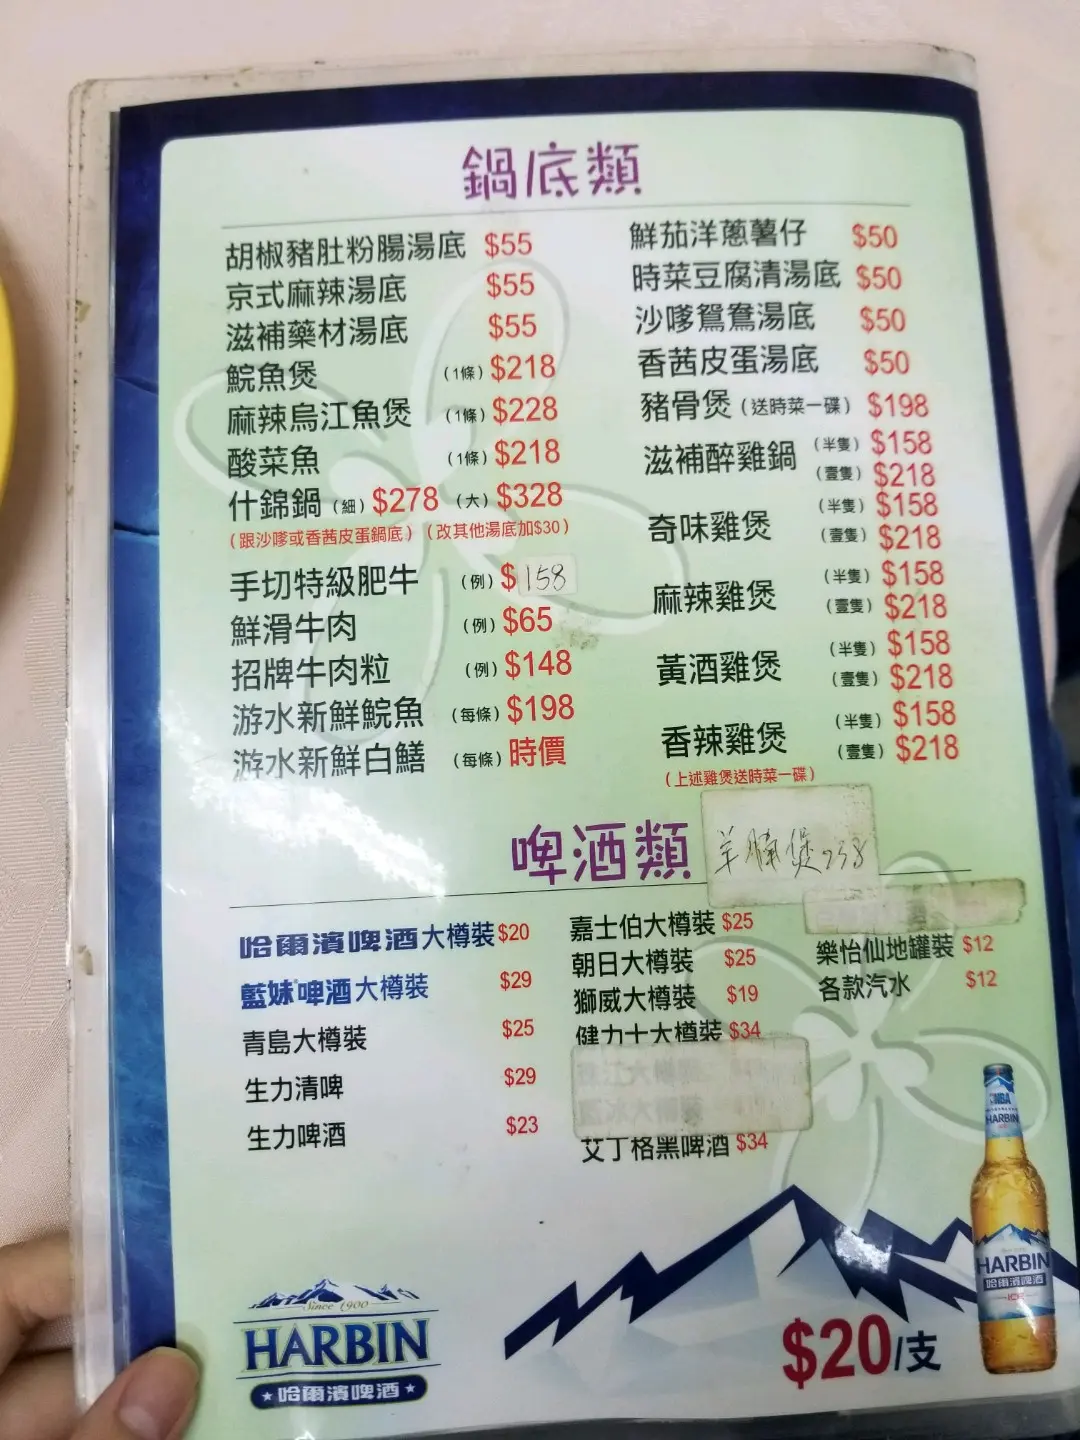 鍋底類
胡椒豬肚粉腸湯底 $55
京式麻辣湯底 $55
滋補藥材湯底 $55
鯇魚煲 (1條) $218
麻辣烏江魚煲 (1條) $228
酸菜魚 (1條) $218
什錦鍋 (細) $278 (大) $328
(跟沙嗲或香茜皮蛋鍋底) (改其他湯底加$30)
手切特級肥牛 (例) $158
鮮滑牛肉 (例) $65
招牌牛肉粒 (例) $148
游水新鮮鯇魚 (每條) $198
游水新鮮白鱔 (每條) 時價
鮮茄洋蔥薯仔 $50
時菜豆腐清湯底 $50
沙嗲鴛鴦湯底 $50
香茜皮蛋湯底 $50
豬骨煲 (送時菜一碟) $198
滋補醉雞鍋 (半隻) $158
(壹隻) $218
奇味雞煲 (半隻) $158
(壹隻) $218
麻辣雞煲 (半隻) $158
(壹隻) $218
黃酒雞煲 (半隻) $158
(壹隻) $218
香辣雞煲 (半隻) $158
(壹隻) $218
(上述雞煲送時菜一碟)
啤酒類
羊腩煲 258
哈爾濱啤酒大樽裝 $20
藍妹啤酒大樽裝 $29
青島大樽裝 $25
生力清啤 $29
生力啤酒 $23
嘉士伯大樽裝 $25
朝日大樽裝 $25
獅威大樽裝 $19
健力士大樽裝 $34
艾丁格黑啤酒 $34
樂怡仙地罐裝 $12
各款汽水 $12
Since 1900
HARBIN
哈爾濱啤酒
$20/支
NBA
HARBIN
HARBIN
哈爾濱啤酒